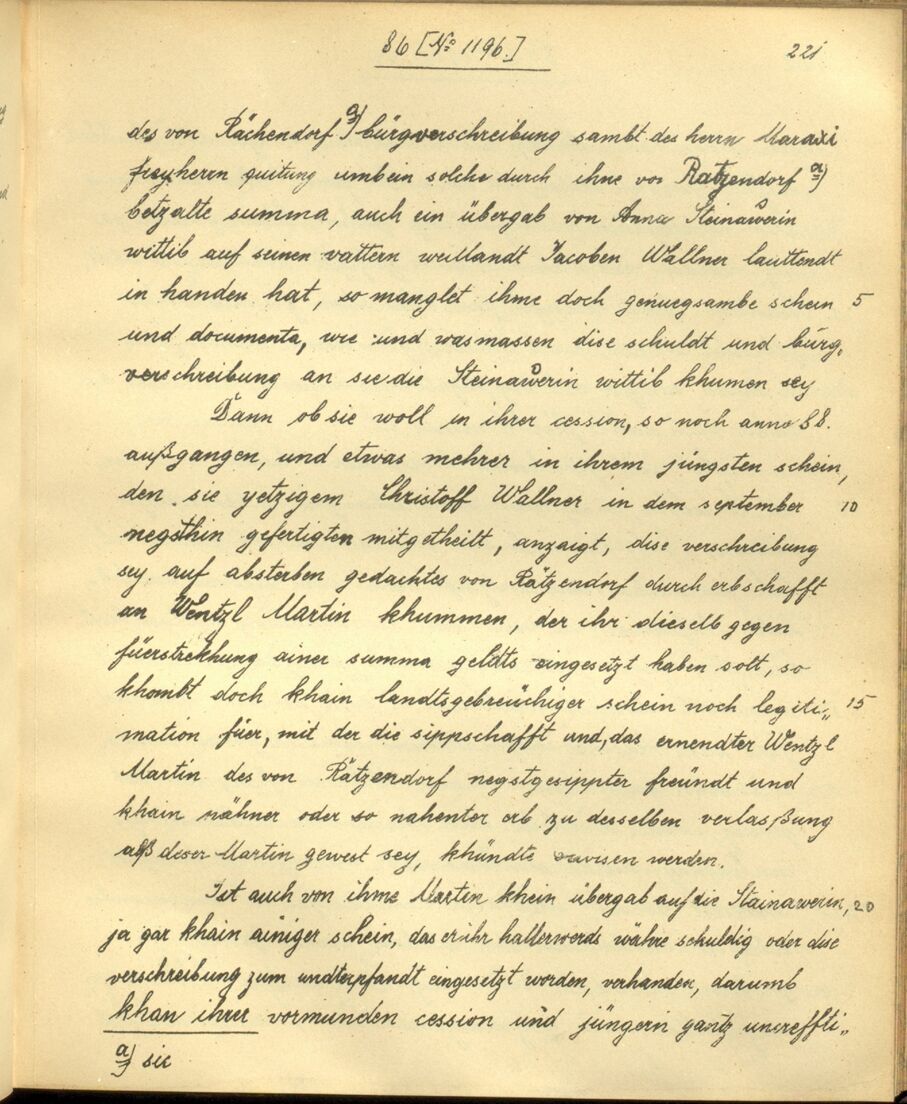 86 [No 1196.]
221
des von Rächendorf a) bürgverschreibung sambt des herrn Maraxi
freyherrn quitung umb ein solche durch ihne von Ratzendorf a)
betzalte summa, auch ein übergab von Anna Steinawerin
wittib auf seinen vattern weillandt Jacoben Wallner lauttendt
in handen hat, so manglet ihme doch genuegsambe schein 5
und documenta, wie und wasmassen dise schuldt und bürg-
verschreibung an sie die Steinawerin wittib khumen sey
Dann ob sie woll in ihrer cession, so noch anno 88.
außgangen, und etwas mehrer in ihrem jüngsten schein,
den sie yetzigem Christoff Wallner in dem september 10
negsthin gefertigten mitgetheilt, anzaigt, dise verschreibung
sey auf absterben gedachtes von Rätzendorf durch erbschafft
an Wentzl Martin khummen, der ihr dieselb gegen
füerstrekhung ainer summa geldts eingesetzt haben solt, so
khombt doch khain landtsgebreüchiger schein noch legiti- 15
mation füer, mit der die sippschafft und, das ernendter Wentzl
Martin des von Rätzendorf negstgesippter freündt und
khain nähner oder so nahenter erb zu desselben verlasßung
alß diser Martin gewest sey, khündte werden.
Ist auch von ihme Martin khein übergab auf die Stainawerin, 20
ja gar khain ainiger schein, das er ihr hallerwerds währe schuldig oder dise
verschreibung zum undterpfandt eingesetzt worden, verhanden, darumb
khan ihrer vormunden cession und jüngern gantz uncreffti-
a) sic